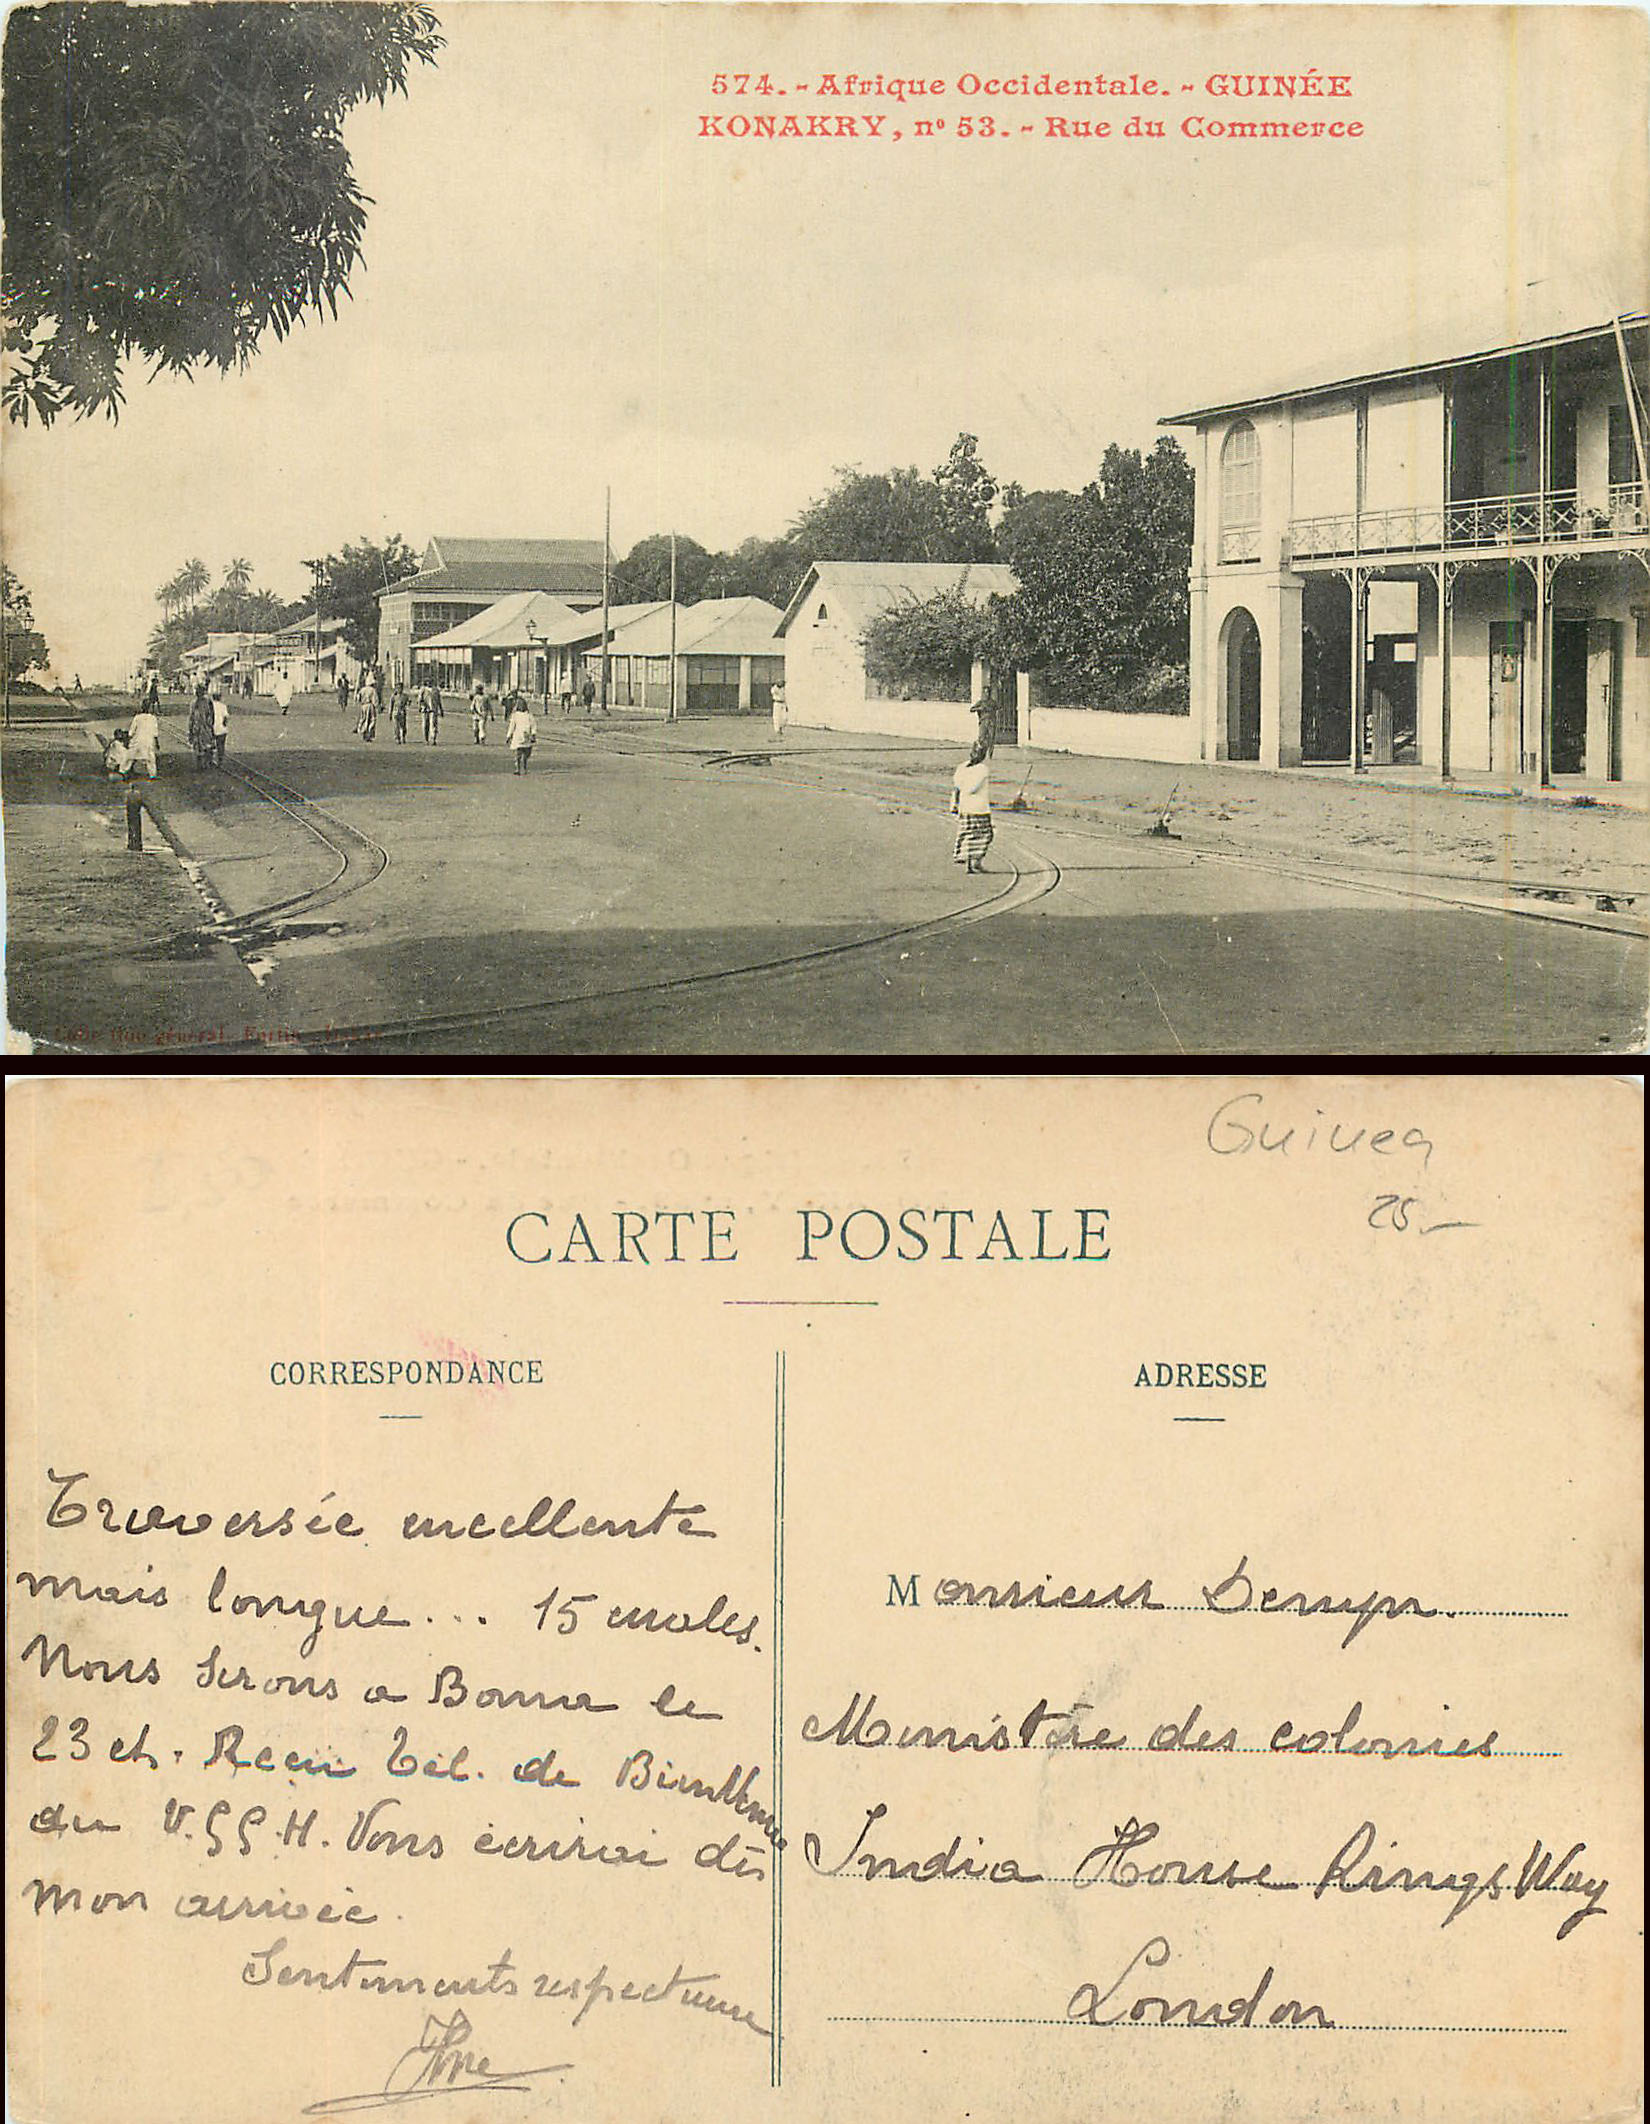 574. - Afrique Occidentale. - GUINÉE
KONAKRY, nº 53. - Rue du Commerce
Collection générale Fortier, Dakar
Guinea
25.—
CARTE POSTALE
CORRESPONDANCE
Traversée excellente
mais longue... 15 escales.
Nous serons a Boma le
23 ct. Recu Tél. de
du V. H. Vous écrirai dès
mon arrivée.
Sentiments respectueux
ADRESSE
Monsieur
Ministère des colonies
India House Kings Way
London